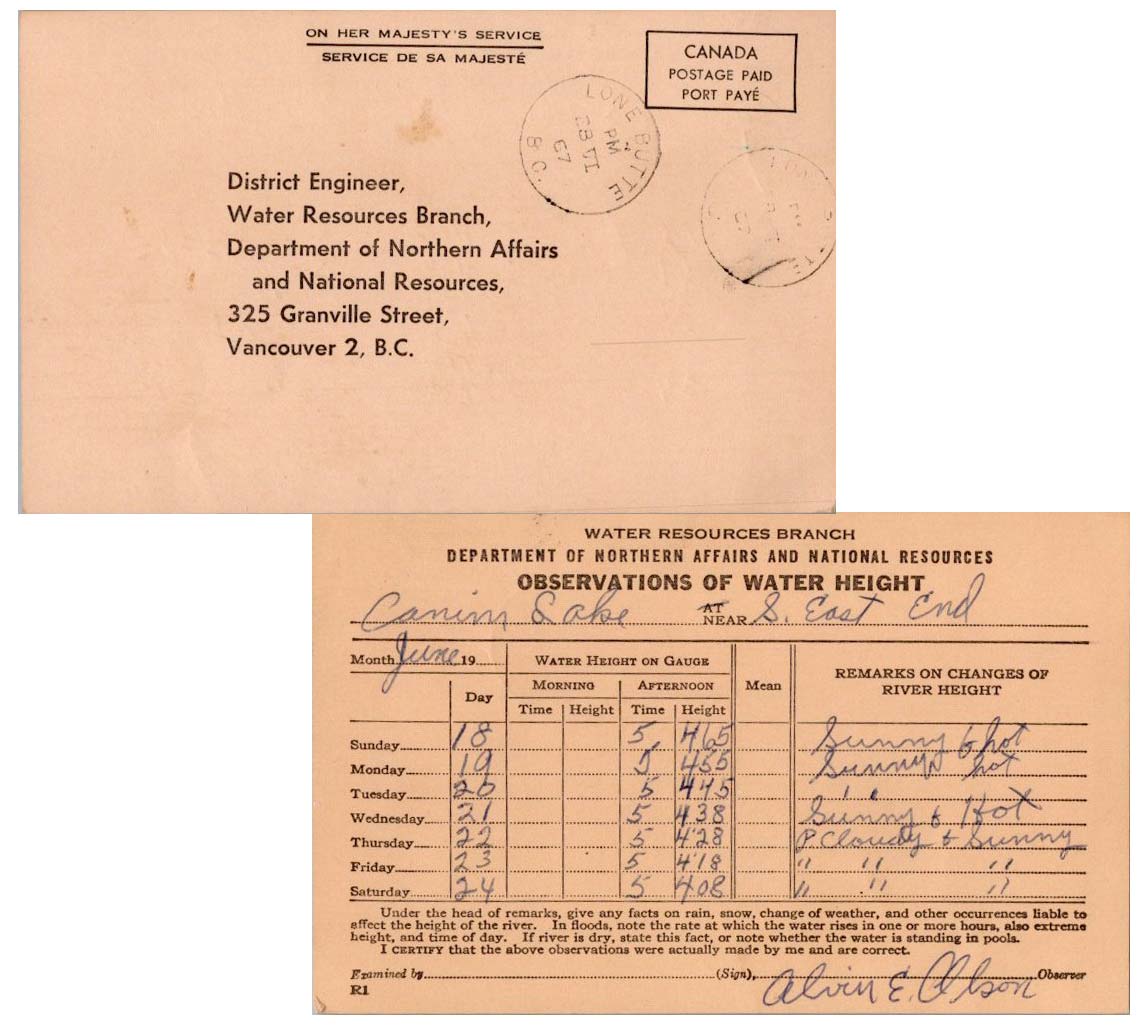 ON HER MAJESTY'S SERVICE
SERVICE DE SA MAJESTÉ
CANADA
POSTAGE PAID
PORT PAYÉ
LONE BUTTE
PM
VI
67
B.C.
District Engineer,
Water Resources Branch,
Department of Northern Affairs
and National Resources,
325 Granville Street,
Vancouver 2, B.C.
WATER RESOURCES BRANCH
DEPARTMENT OF NORTHERN AFFAIRS AND NATIONAL RESOURCES
OBSERVATIONS OF WATER HEIGHT
Canim Lake AT NEAR S. East End
Month June 19 WATER HEIGHT ON GAUGE Mean REMARKS ON CHANGES OF RIVER HEIGHT
Day MORNING AFTERNOON
Time Height Time Height
Sunday 18 5 4.65 Sunny & hot
Monday 19 5 4.55 Sunny & hot
Tuesday 20 5 4.45 " "
Wednesday 21 5 4.38 Sunny & Hot
Thursday 22 5 4.28 P. Cloudy & Sunny
Friday 23 5 4.18 " " "
Saturday 24 5 4.08 " " "
Under the head of remarks, give any facts on rain, snow, change of weather, and other occurrences liable to
affect the height of the river. In floods, note the rate at which the water rises in one or more hours, also extreme
height, and time of day. If river is dry, state this fact, or note whether the water is standing in pools.
I CERTIFY that the above observations were actually made by me and are correct.
Examined by (Sign), Alvin E. Olson Observer
R1